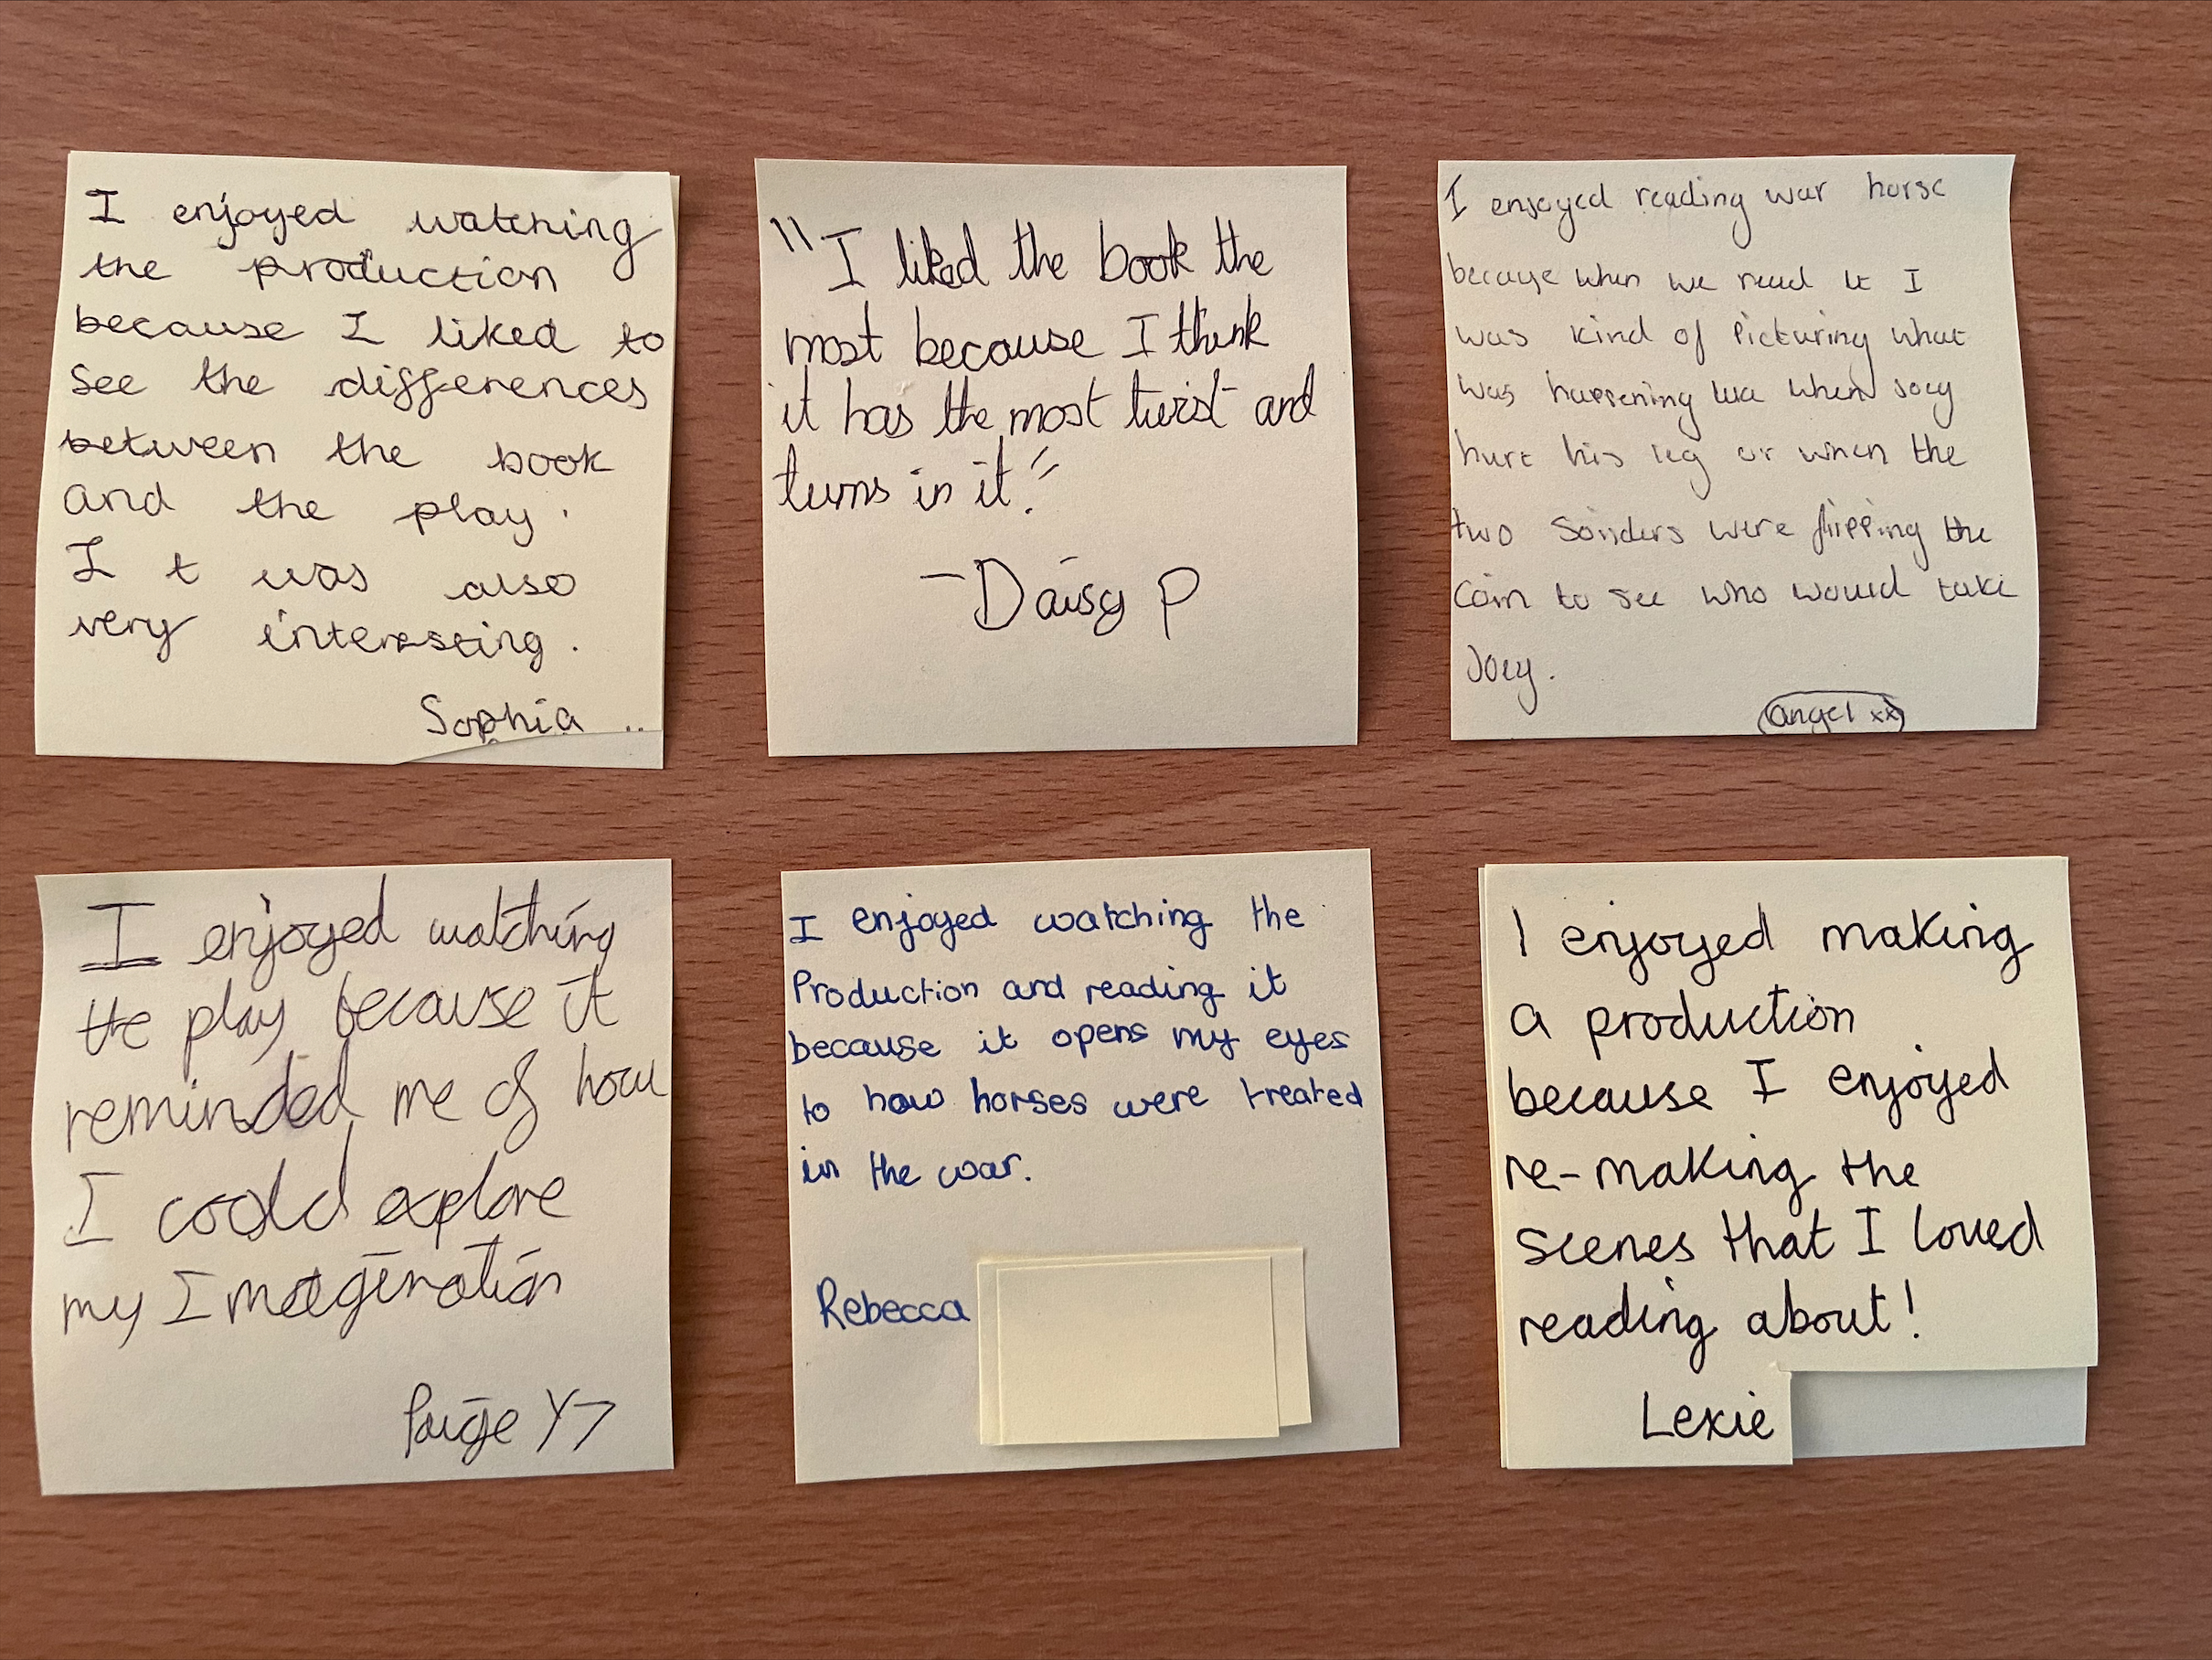 I enjoyed watching
the production
because I liked to
see the differences
between the book
and the play.
It was also
very interesting.
Sophia ..
"I liked the book the
most because I think
it has the most twist and
turns in it."
- Daisy P
I enjoyed reading war horse
because when we read it I
was kind of picturing what
was happening like when Joey
hurt his leg or when the
two Soilders were flipping the
coin to see who would take
Joey.
angel xx
I enjoyed watching
the play because it
reminded me of how
I could explore
my Imagination
Paige Y7
I enjoyed watching the
Production and reading it
because it opens my eyes
to how horses were treated
in the war.
Rebecca
I enjoyed making
a production
because I enjoyed
re-making the
scenes that I loved
reading about!
Lexie